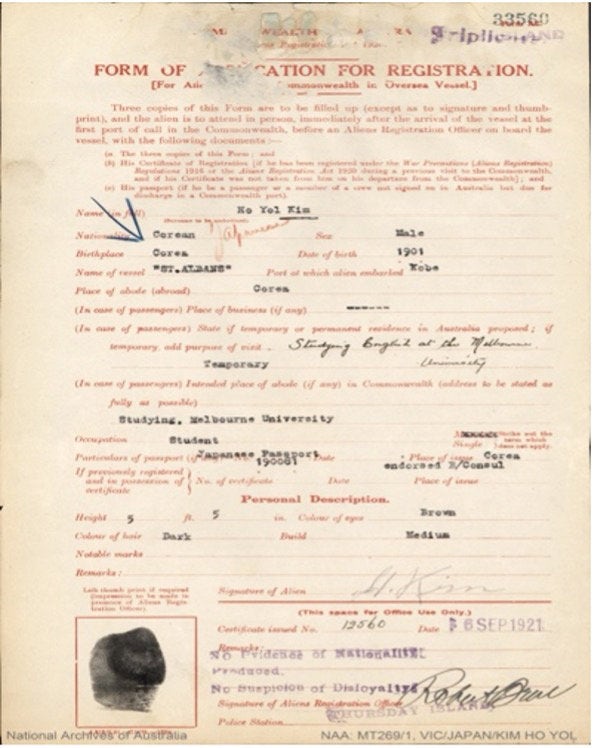 33560
Triplicate
FORM OF APPLICATION FOR REGISTRATION.
Commonwealth in Oversea Vessel.]
Three copies of this Form are to be filled up (except as to signature and thumb-
print), and the alien is to attend in person, immediately after the arrival of the vessel at the
first port of call in the Commonwealth, before an Aliens Registration Officer on board the
vessel, with the following documents:—
(a) The three copies of this Form; and
(b) His Certificate of Registration (if he has been registered under the War Precautions (Aliens Registration)
Regulations 1916 or the Aliens Registration Act 1920 during a previous visit to the Commonwealth,
and if his Certificate was not taken from him on his departure from the Commonwealth); and
(c) His passport (if he be a passenger or a member of a crew not signed on in Australia but due for
discharge in a Commonwealth port).
Name (in full) Ho Yol Kim
(Surname to be underlined)
Nationality Corean Japanese Sex Male
Birthplace Corea Date of birth 1901
Name of vessel "ST.ALBANS" Port at which alien embarked Kobe
Place of abode (abroad) Corea
(In case of passengers) Place of business (if any) ------
(In case of passengers) State if temporary or permanent residence in Australia proposed; if
temporary, add purpose of visit. Studying English at the Melbourne
Temporary University
(In case of passengers) Intended place of abode (if any) in Commonwealth (address to be stated as
fully as possible)
Studying, Melbourne University
Occupation Student Single Strike out the term which does not apply.
Particulars of passport (if any) No. Japanese Passport 190081 Date Place of issue Corea
endorsed B/Consul
If previously registered and in possession of certificate No. of certificate Date Place of issue
Personal Description.
Height 5 ft. 5 in. Colour of eyes Brown
Colour of hair Dark Build Medium
Notable marks
Remarks:
Left thumb print if required (impression to be made in presence of Aliens Registration Officer).
Signature of Alien H. Kim
(This space for Office Use Only.)
Certificate issued No. 12560 Date 6 SEP 1921
Remarks:
No Evidence of Nationality
Produced.
No Suspicion of Disloyalty
Signature of Aliens Registration Officer
THURSDAY ISLAND
Police Station
National Archives of Australia NAA: MT269/1, VIC/JAPAN/KIM HO YOL